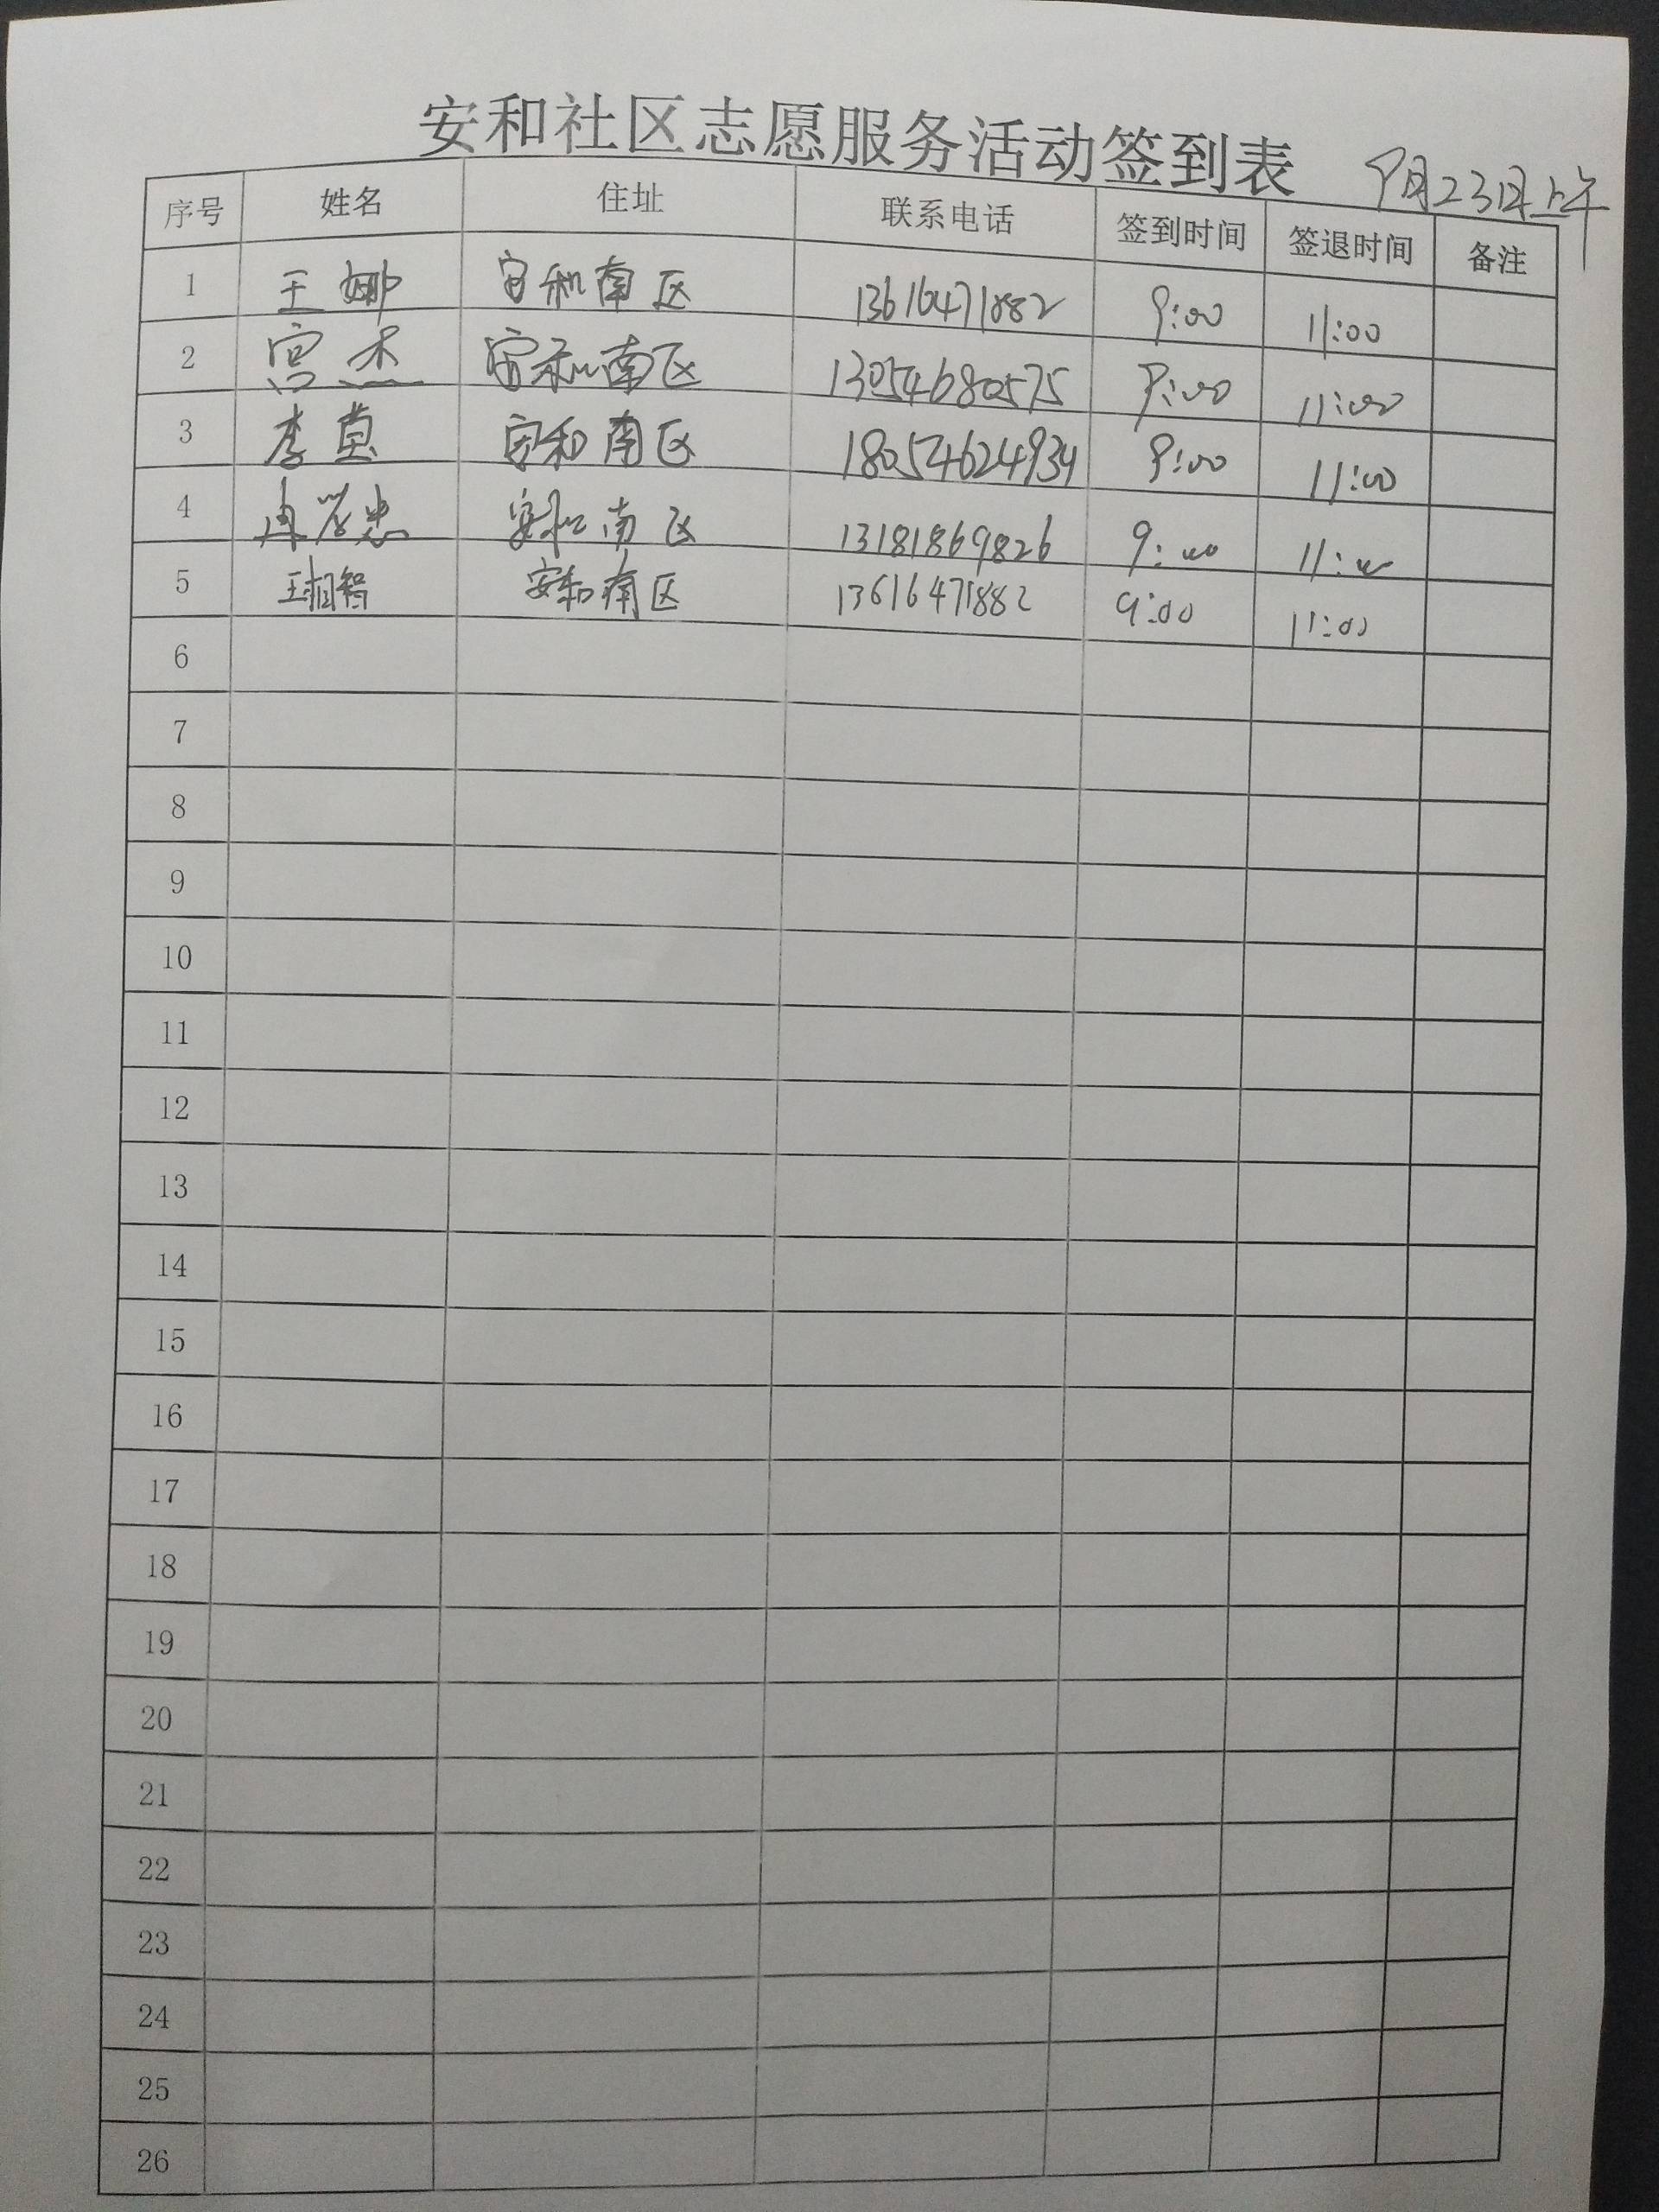 安和社区志愿服务活动签到表 9月23日上午
序号 姓名 住址 联系电话 签到时间 签退时间 备注
1 王娜 安和南区 13616471882 9:00 11:00
2 宫杰 安和南区 13054680575 9:00 11:00
3 李 安和南区 18054624934 9:00 11:00
4 安和南区 13181869826 9:00 11:00
5 王相智 安和南区 13616471882 9:00 11:00
6
7
8
9
10
11
12
13
14
15
16
17
18
19
20
21
22
23
24
25
26